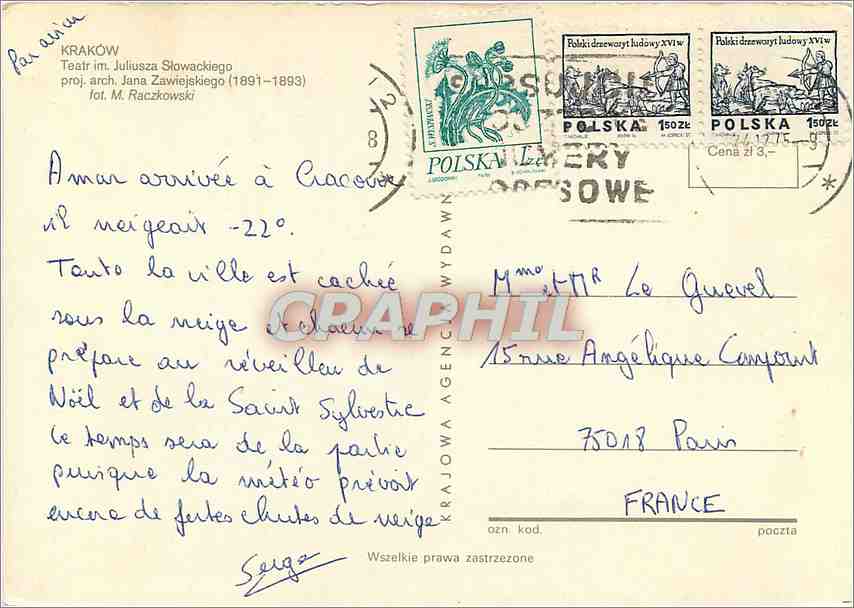 Par avion
KRAKÓW
Teatr im. Juliusza Słowackiego
proj. arch. Jana Zawiejskiego (1891-1893)
fot. M. Raczkowski
POLSKA 1 ZŁ
Polski drzeworyt ludowy XVI w
POLSKA 1.50 ZŁ
Polski drzeworyt ludowy XVI w
POLSKA 1.50 ZŁ
Cena zł 3,–
A mon arrivée à Cracovie
il neigeait -22°.
Toute la ville est cachée
sous la neige et chacun se
prépare au réveillon de
Noël et de la Saint Sylvestre
Le temps sera de la partie
puisque la météo prévoit
encore de fortes chutes de neige
Serge
KRAJOWA AGENCJA WYDAWN
Mme et MR Le Guevel
15 rue Angélique Compoint
75018 Paris
FRANCE
ozn. kod. poczta
Wszelkie prawa zastrzezone
CPAPHIL